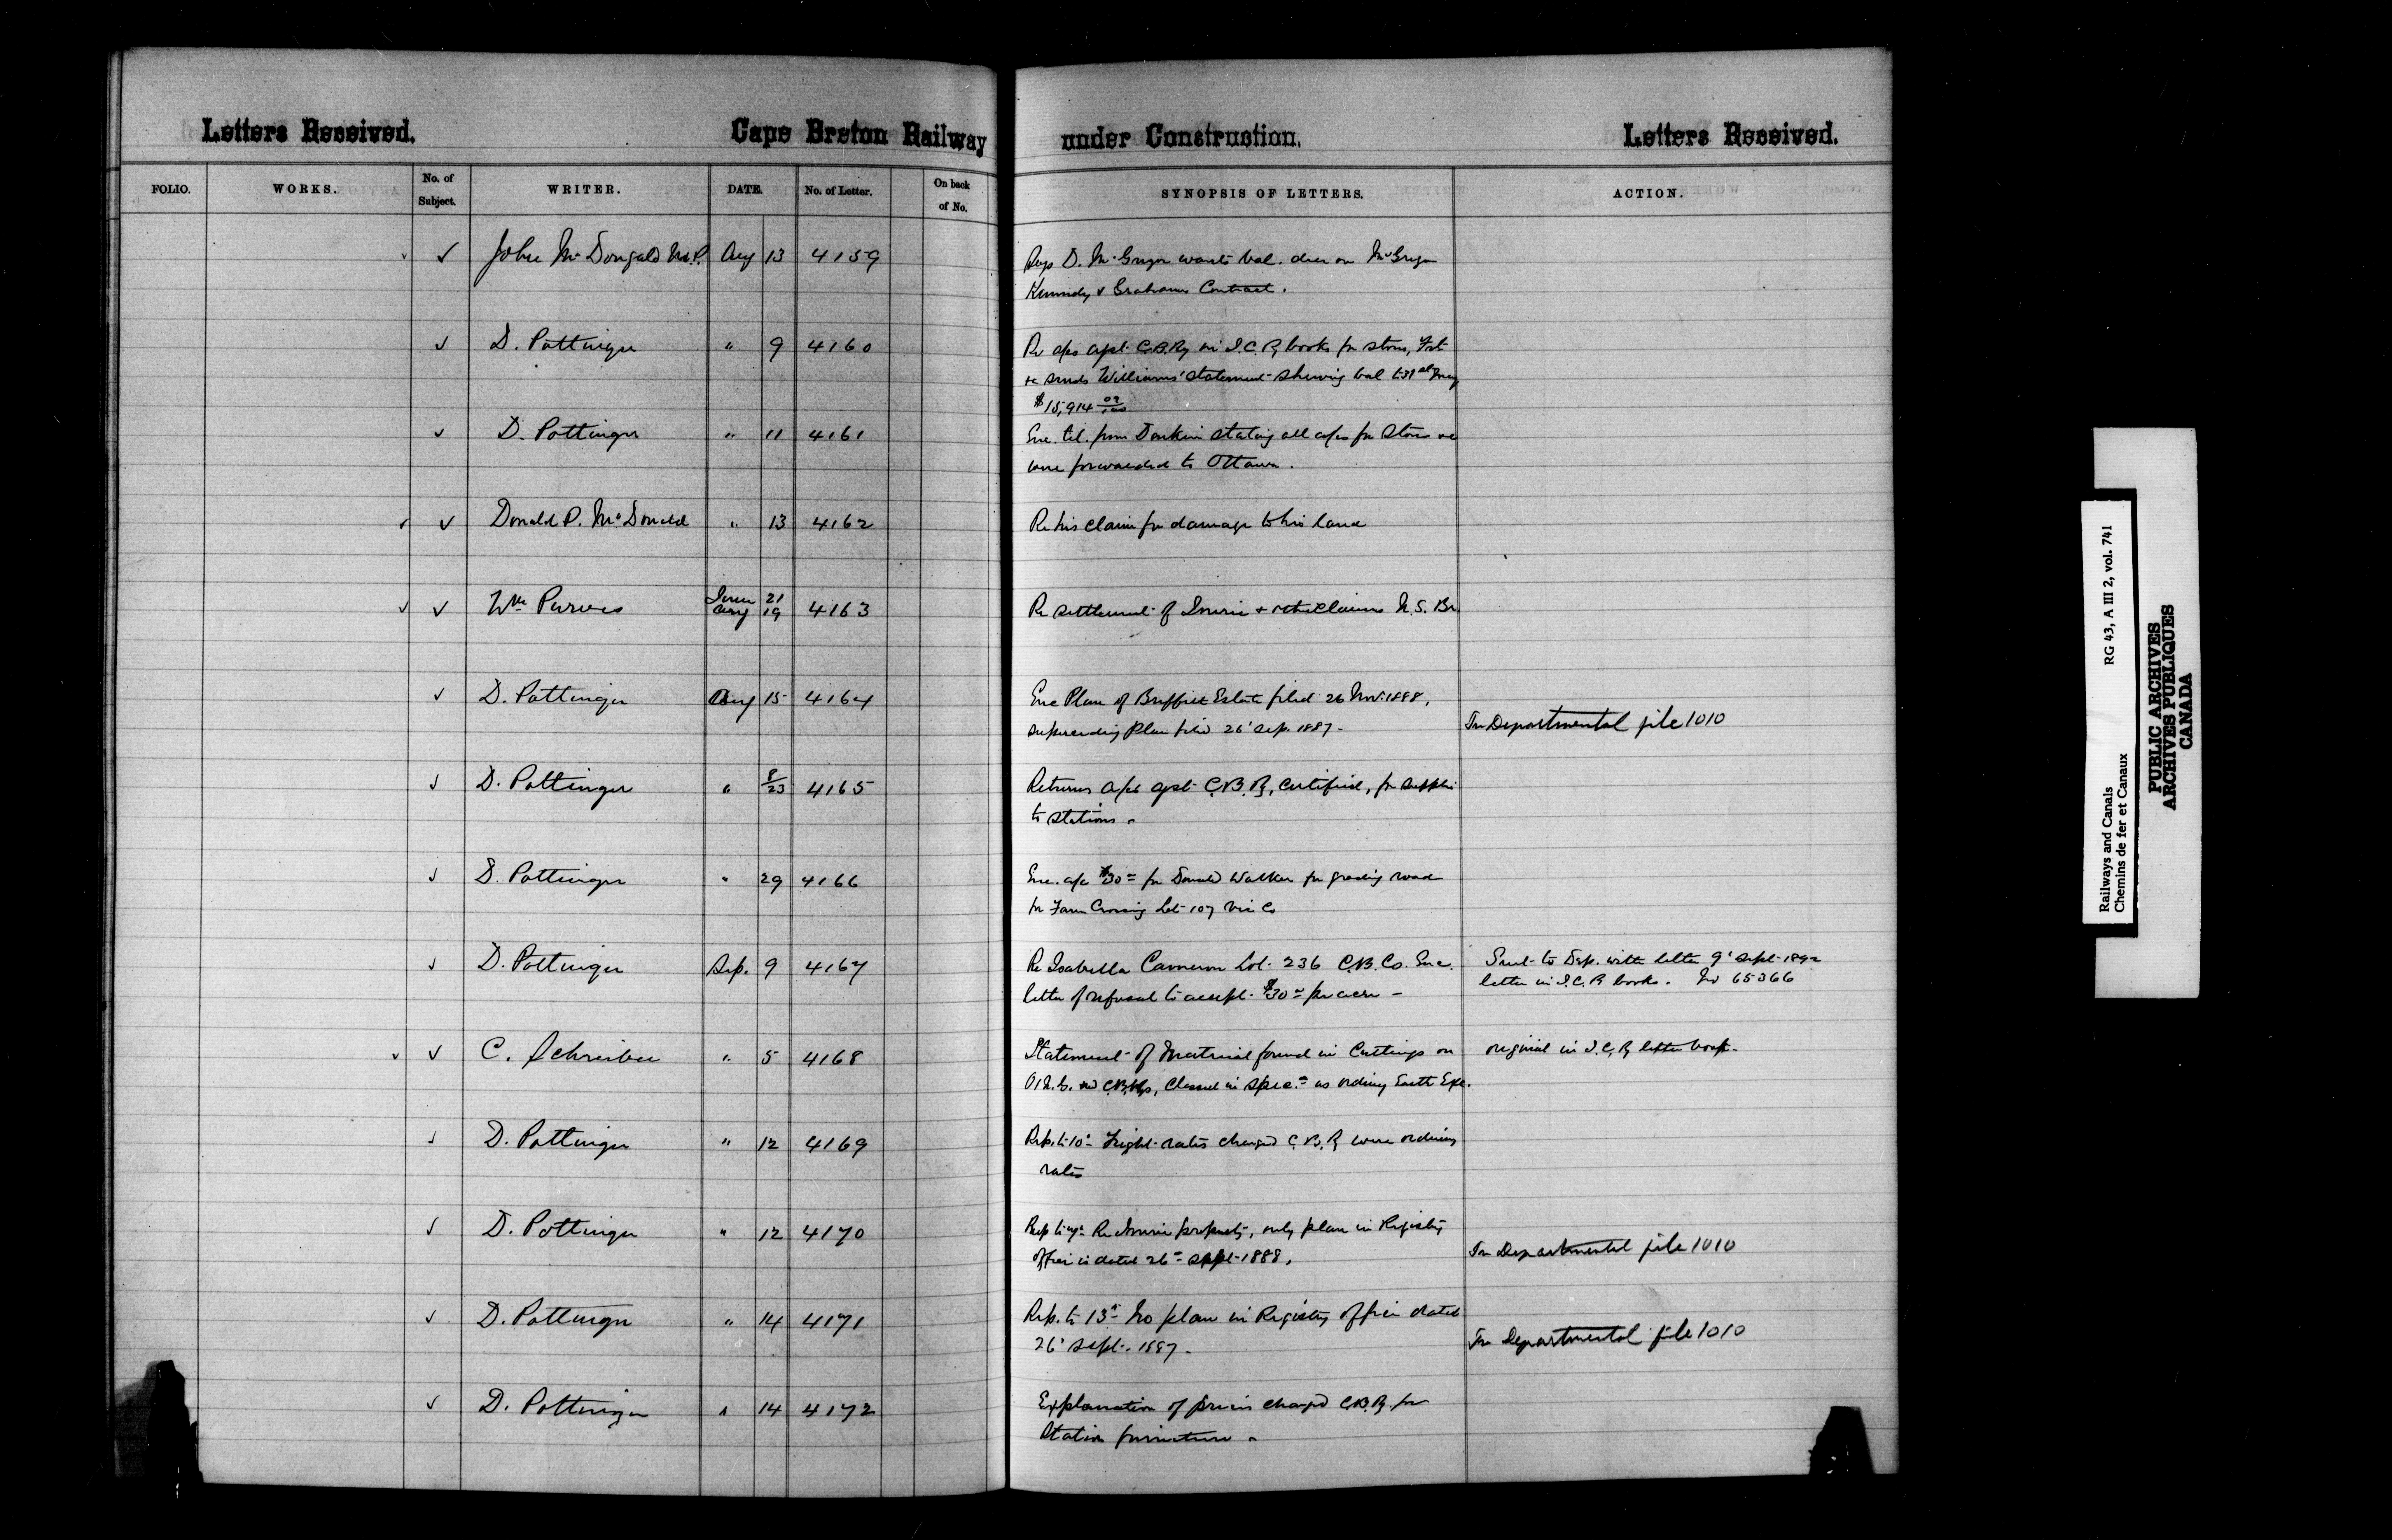 Letters Received. Cape Breton Railway under Construction. Letters Received.
FOLIO. WORKS. No. of Subject. WRITER. DATE. No. of Letter. On back of No. SYNOPSIS OF LETTERS. ACTION.
✓ ✓ John McDougald M.P. Aug 13 4159 D. McGregor wants bal. due on McGregor
Kennedy & Grahams Contract.
✓ D. Pottinger " 9 4160 Re a/cs agst C.B.Ry in I.C.Ry books for stores, Frt
&c sends Williams' statement shewing bal to 31st May
$15,914 09/100
✓ D. Pottinger " 11 4161 Enc. tel. from Donkin stating all a/cs for Stores &c
were forwarded to Ottawa.
✓ ✓ Donald P. McDonald " 13 4162 Re his claim for damage to his land
✓ ✓ Wm Purves June 21 Aug 19 4163 Re settlement of & other Claims N.S. Br.
✓ D. Pottinger Aug 15 4164 Enc Plan of Estate filed 26 Nov. 1888,
superseding Plan filed 26' Sep. 1887.
In Departmental file 1010
✓ D. Pottinger " 8/23 4165 Returns a/cs agst C.B.Ry, certified, for supplies
to stations.
✓ D. Pottinger " 29 4166 Enc. a/c $30= for Donald Walker for grading road
for Farm Crossing Lot 107 Vic Co
✓ D. Pottinger Sep. 9 4167 Re Isabella Cameron Lot 236 C.B. Co. Enc. Sent to Dep. with letter 9' Sept 1892
letter of refusal to accept $30= per acre — letter in I.C.R books. No 65366
✓ ✓ C. Schreiber " 5 4168 Statement of Material found in Cuttings on original in I.C.Ry letter book.
O. & N.G. and C.B.Rys, Classed in spec.n as ordinary Earth Exc.
✓ D. Pottinger " 12 4169 Rep. to 10' Freight rates charged C.B.Ry were ordinary
rates
✓ D. Pottinger " 12 4170 Rep to Re property, only plan in Registry
Office is dated 26= Sept 1888.
In Departmental file 1010
✓ D. Pottinger " 14 4171 Rep. to 13' No plan in Registry Office dated
26' Sept. 1887.
In Departmental file 1010
✓ D. Pottinger " 14 4172 Explanation of prices charged C.B.Ry for
Station furniture.
Railways and Canals RG 43, A III 2, vol. 741
Chemins de fer et Canaux
PUBLIC ARCHIVES
ARCHIVES PUBLIQUES
CANADA